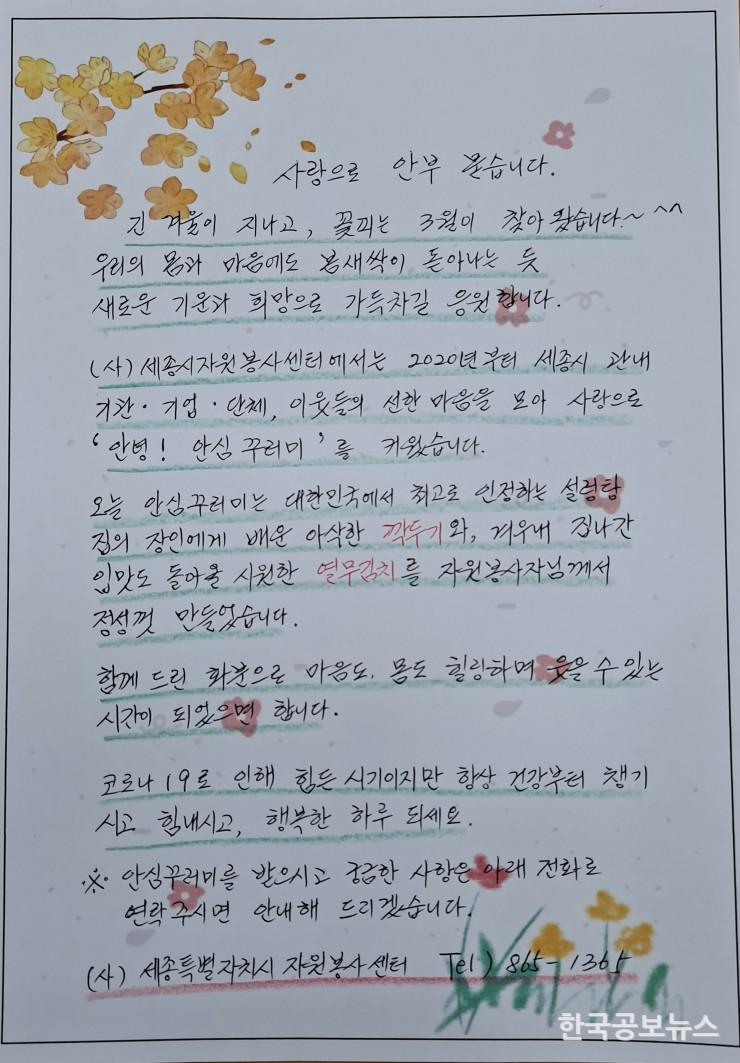 사랑으로 안부 묻습니다.
긴 겨울이 지나고, 꽃피는 3월이 찾아 왔습니다~ ^^
우리의 몸과 마음에도 봄새싹이 돋아나는 듯
새로운 기운과 희망으로 가득차길 응원합니다.
(사)세종시자원봉사센터에서는 2020년부터 세종시 관내
기관·기업·단체, 이웃들의 선한 마음을 모아 사랑으로
'안녕! 안심 꾸러미'를 키웠습니다.
오늘 안심꾸러미는 대한민국에서 최고로 인정하는 설렁탕
집의 장인에게 배운 아삭한 깍두기와, 겨우내 집나간
입맛도 돌아올 시원한 열무김치를 자원봉사자님께서
정성껏 만들었습니다.
함께 드린 화분으로 마음도, 몸도 힐링하며 웃을 수 있는
시간이 되었으면 합니다.
코로나19로 인해 힘든 시기이지만 항상 건강부터 챙기
시고 힘내시고, 행복한 하루 되세요.
※ 안심꾸러미를 받으시고 궁금한 사항은 아래 전화로
연락주시면 안내해 드리겠습니다.
(사) 세종특별자치시 자원봉사센터 Tel) 865-1365
한국공보뉴스